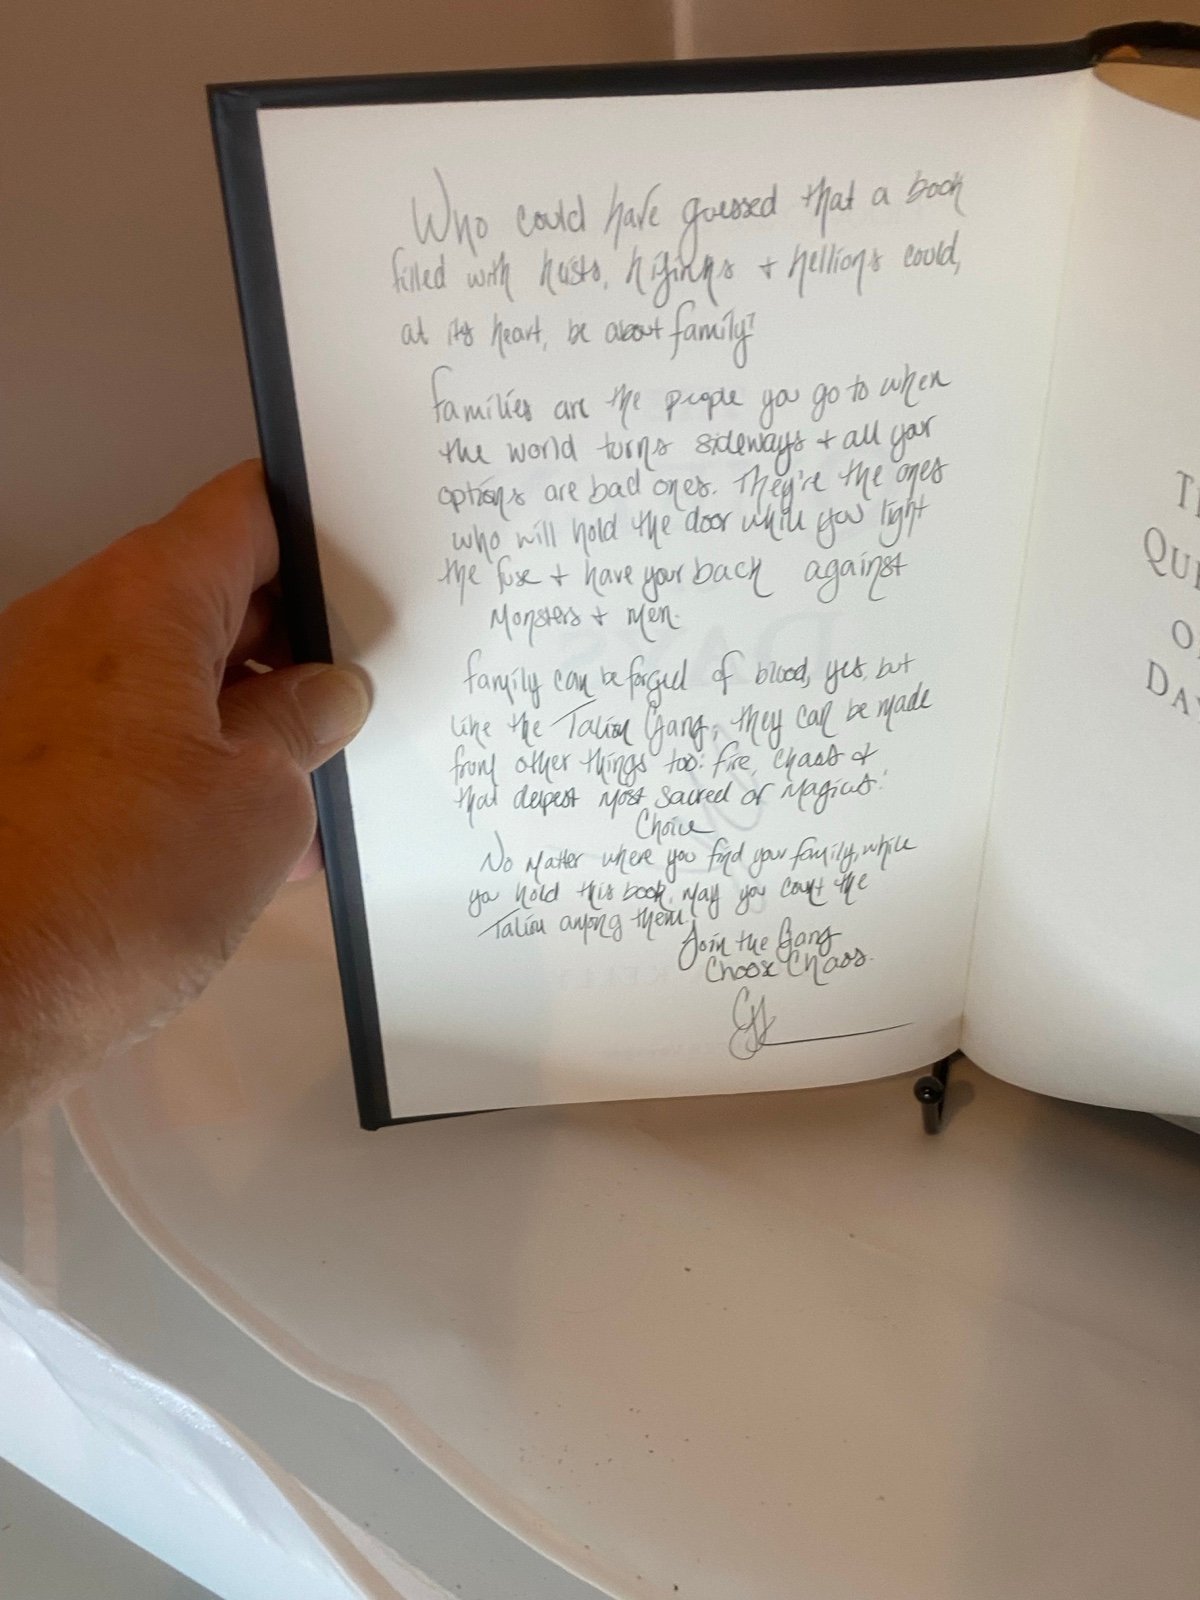 Who could have guessed that a book
filled with heists, hijinks + hellions could,
at its heart, be about family?
Families are the people you go to when
the world turns sideways + all your
options are bad ones. They're the ones
who will hold the door while you light
the fuse + have your back against
Monsters + Men.
Family can be forged of blood, yes, but
like the Talion Gang, they can be made
from other things too: fire, chaos +
that deepest most sacred of magics:
Choice
No Matter where you find your family, while
you hold this book, may you count the
Talion among them.
Join the Gang
Choose Chaos.
QU
DA